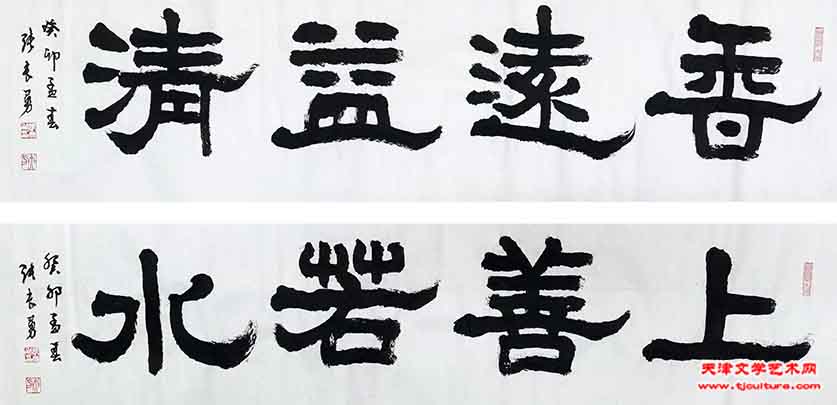 香遠益清
癸卯孟春
上善若水
癸卯孟春
天津文学艺术网
www.tjculture.com